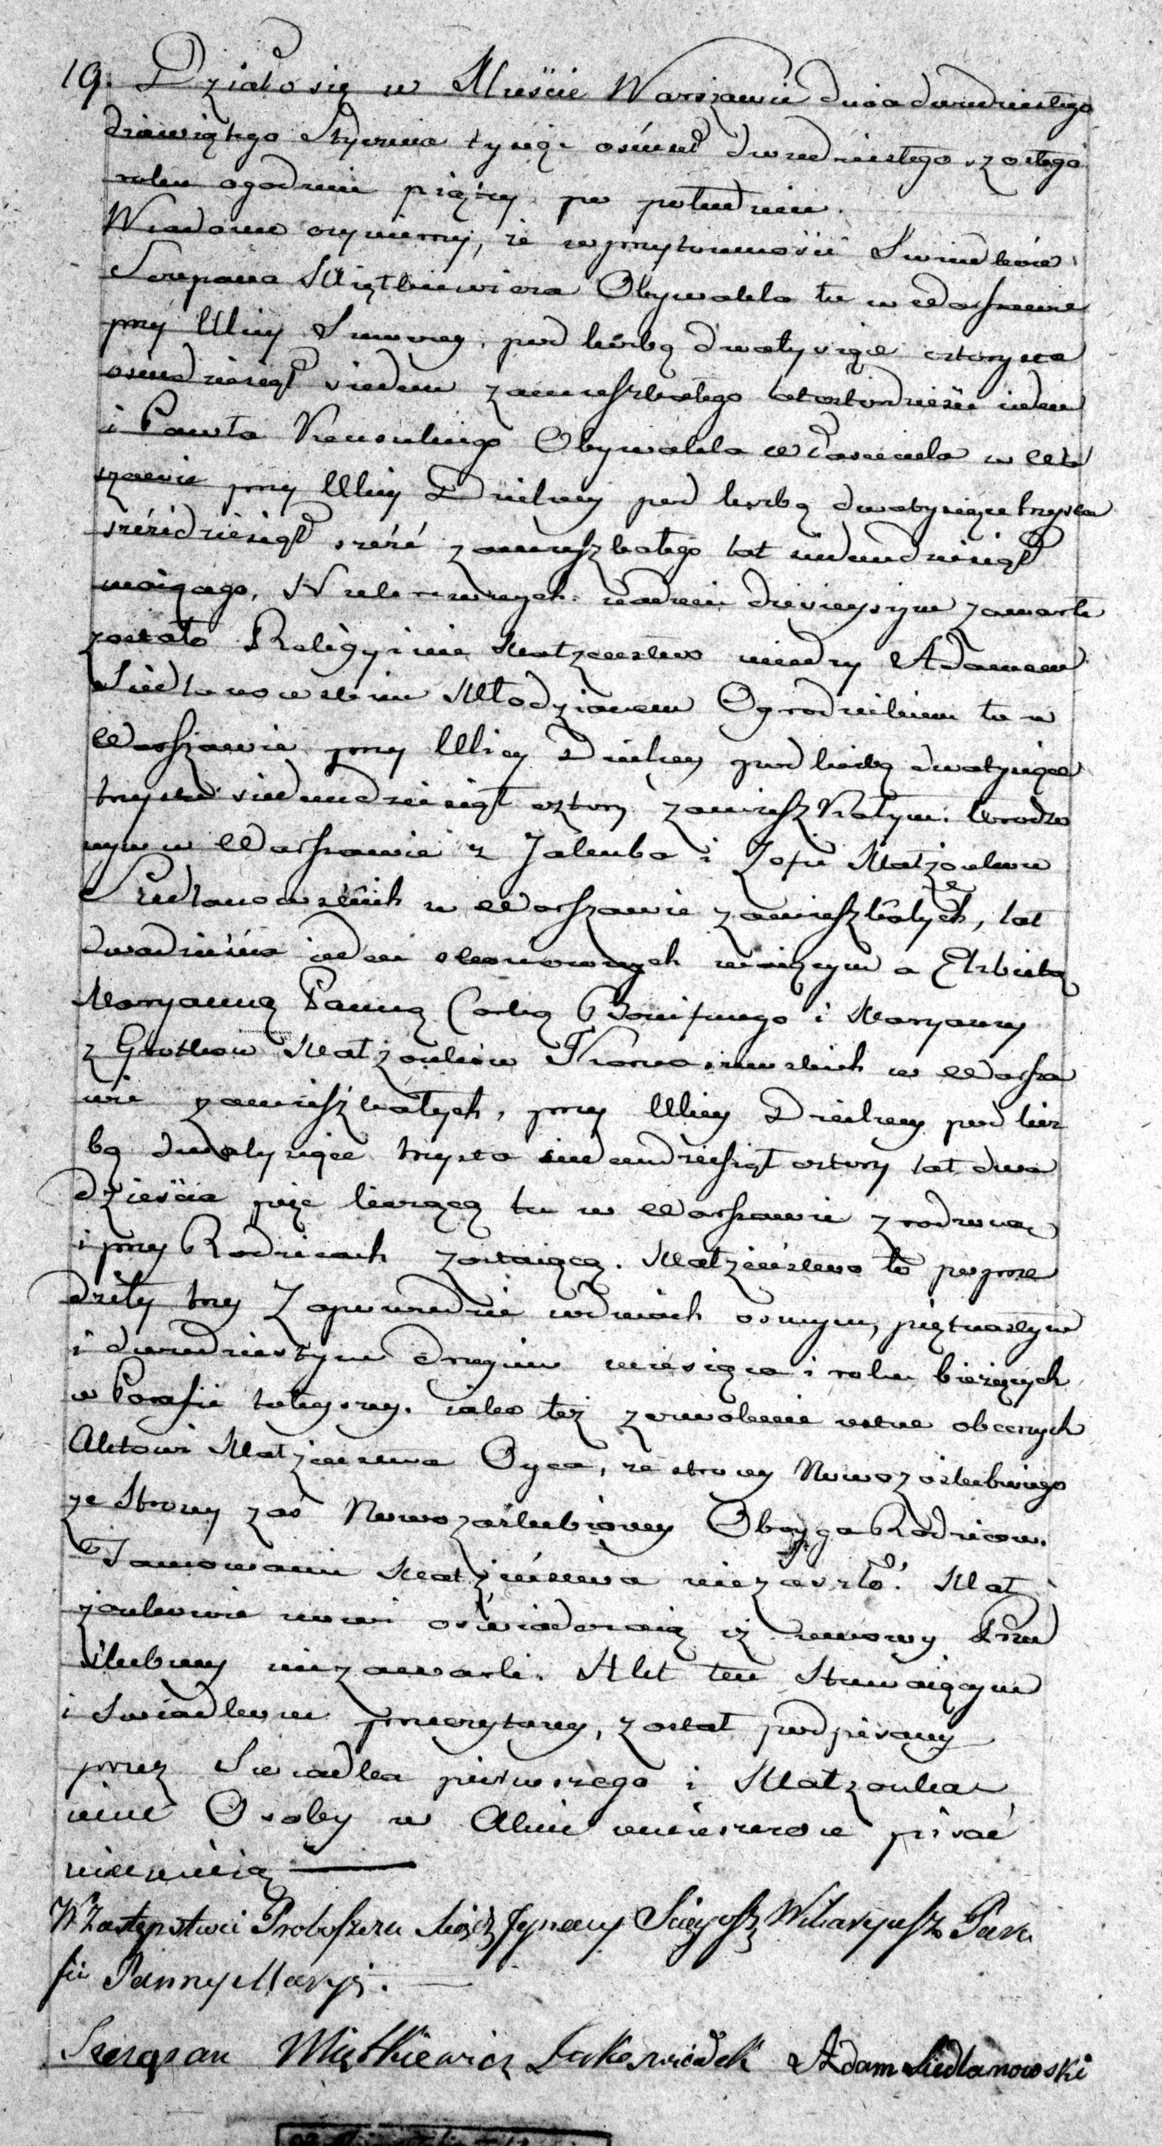 19. Działo się w Mieście Warszawie dnia dwudziestego
dziewiątego Stycznia tysiąc ośmset dwudziestego szóstego
roku o godzinie piątey po południu.
Wiadomo czyniemy, że w przytomności Świadków
Szczepana Miętkiewicza Obywatela tu w Warszawie
przy Ulicy pod liczbą dwatysiące czterysta
osmdziesiąt siedem zamieszkałego lat czterdzieści ieden
i Pawła Obywatela Właściciela w War
szawie przy Ulicy Dzielney pod liczbą dwatysiące trzysta
sześćdziesiąt sześć zamieszkałego lat siedmdziesiąt
maiącego, Na dniu dzisieyszym zawarte
zostało Religiyinie Małżeństwo między Adamem
Siedlanowskim Młodzianem Ogrodnikiem tu w
Warszawie przy Ulicy Dzielney pod liczbą dwatysiące
trzysta siedmdziesiąt cztery zamieszkałym. Urodzo
nym w Warszawie z Jakuba i Zofii Małżonków
Siedlanowskich w Warszawie zamieszkałych, lat
dwadzieścia ieden skończonych maiącym a Elżbietą
Maryanną Panną Córką Bonifacego i Maryanny
z Małżonków w Warsza
wie zamieszkałych, przy Ulicy Dzielney pod licz
bą dwatysiące trzysta siedmdziesiąt cztery lat dwa
dzieścia pięć liczącą tu w Warszawie zrodzoną
i przy Rodzicach zostaiącą. Małżeństwo to poprze
dziły trzy Zapowiedzie w dniach osmym, piętnastym
i dwudziestym drugim miesiąca i roku bieżących
w Parafii tuteyszey. iako też zezwolenie ustne obecnych
Aktowi Małżeństwa Oyca, ze strony Nowozaślubionego
ze Strony zaś Nowozaślubioney Oboyga Rodziców.
Tamowanie Małżeństwa niezaszło. Mał
żonkowie nowi oświadczaią iż umowy Przed
ślubney niezawarli. Akt ten Stawaiącym
i Świadkom przeczytany, został podpisany
przez Świadka pierwszego i Małżonka,
inne Osoby w Akcie umieszczone pisać
nieumieią
W Zastępstwie Proboszcza Xiądz Jgnacy Wikaryusz Para
fii Panny Maryi.
Szczepan Miętkiewicz Jako swiadek Adam Siedlanowski